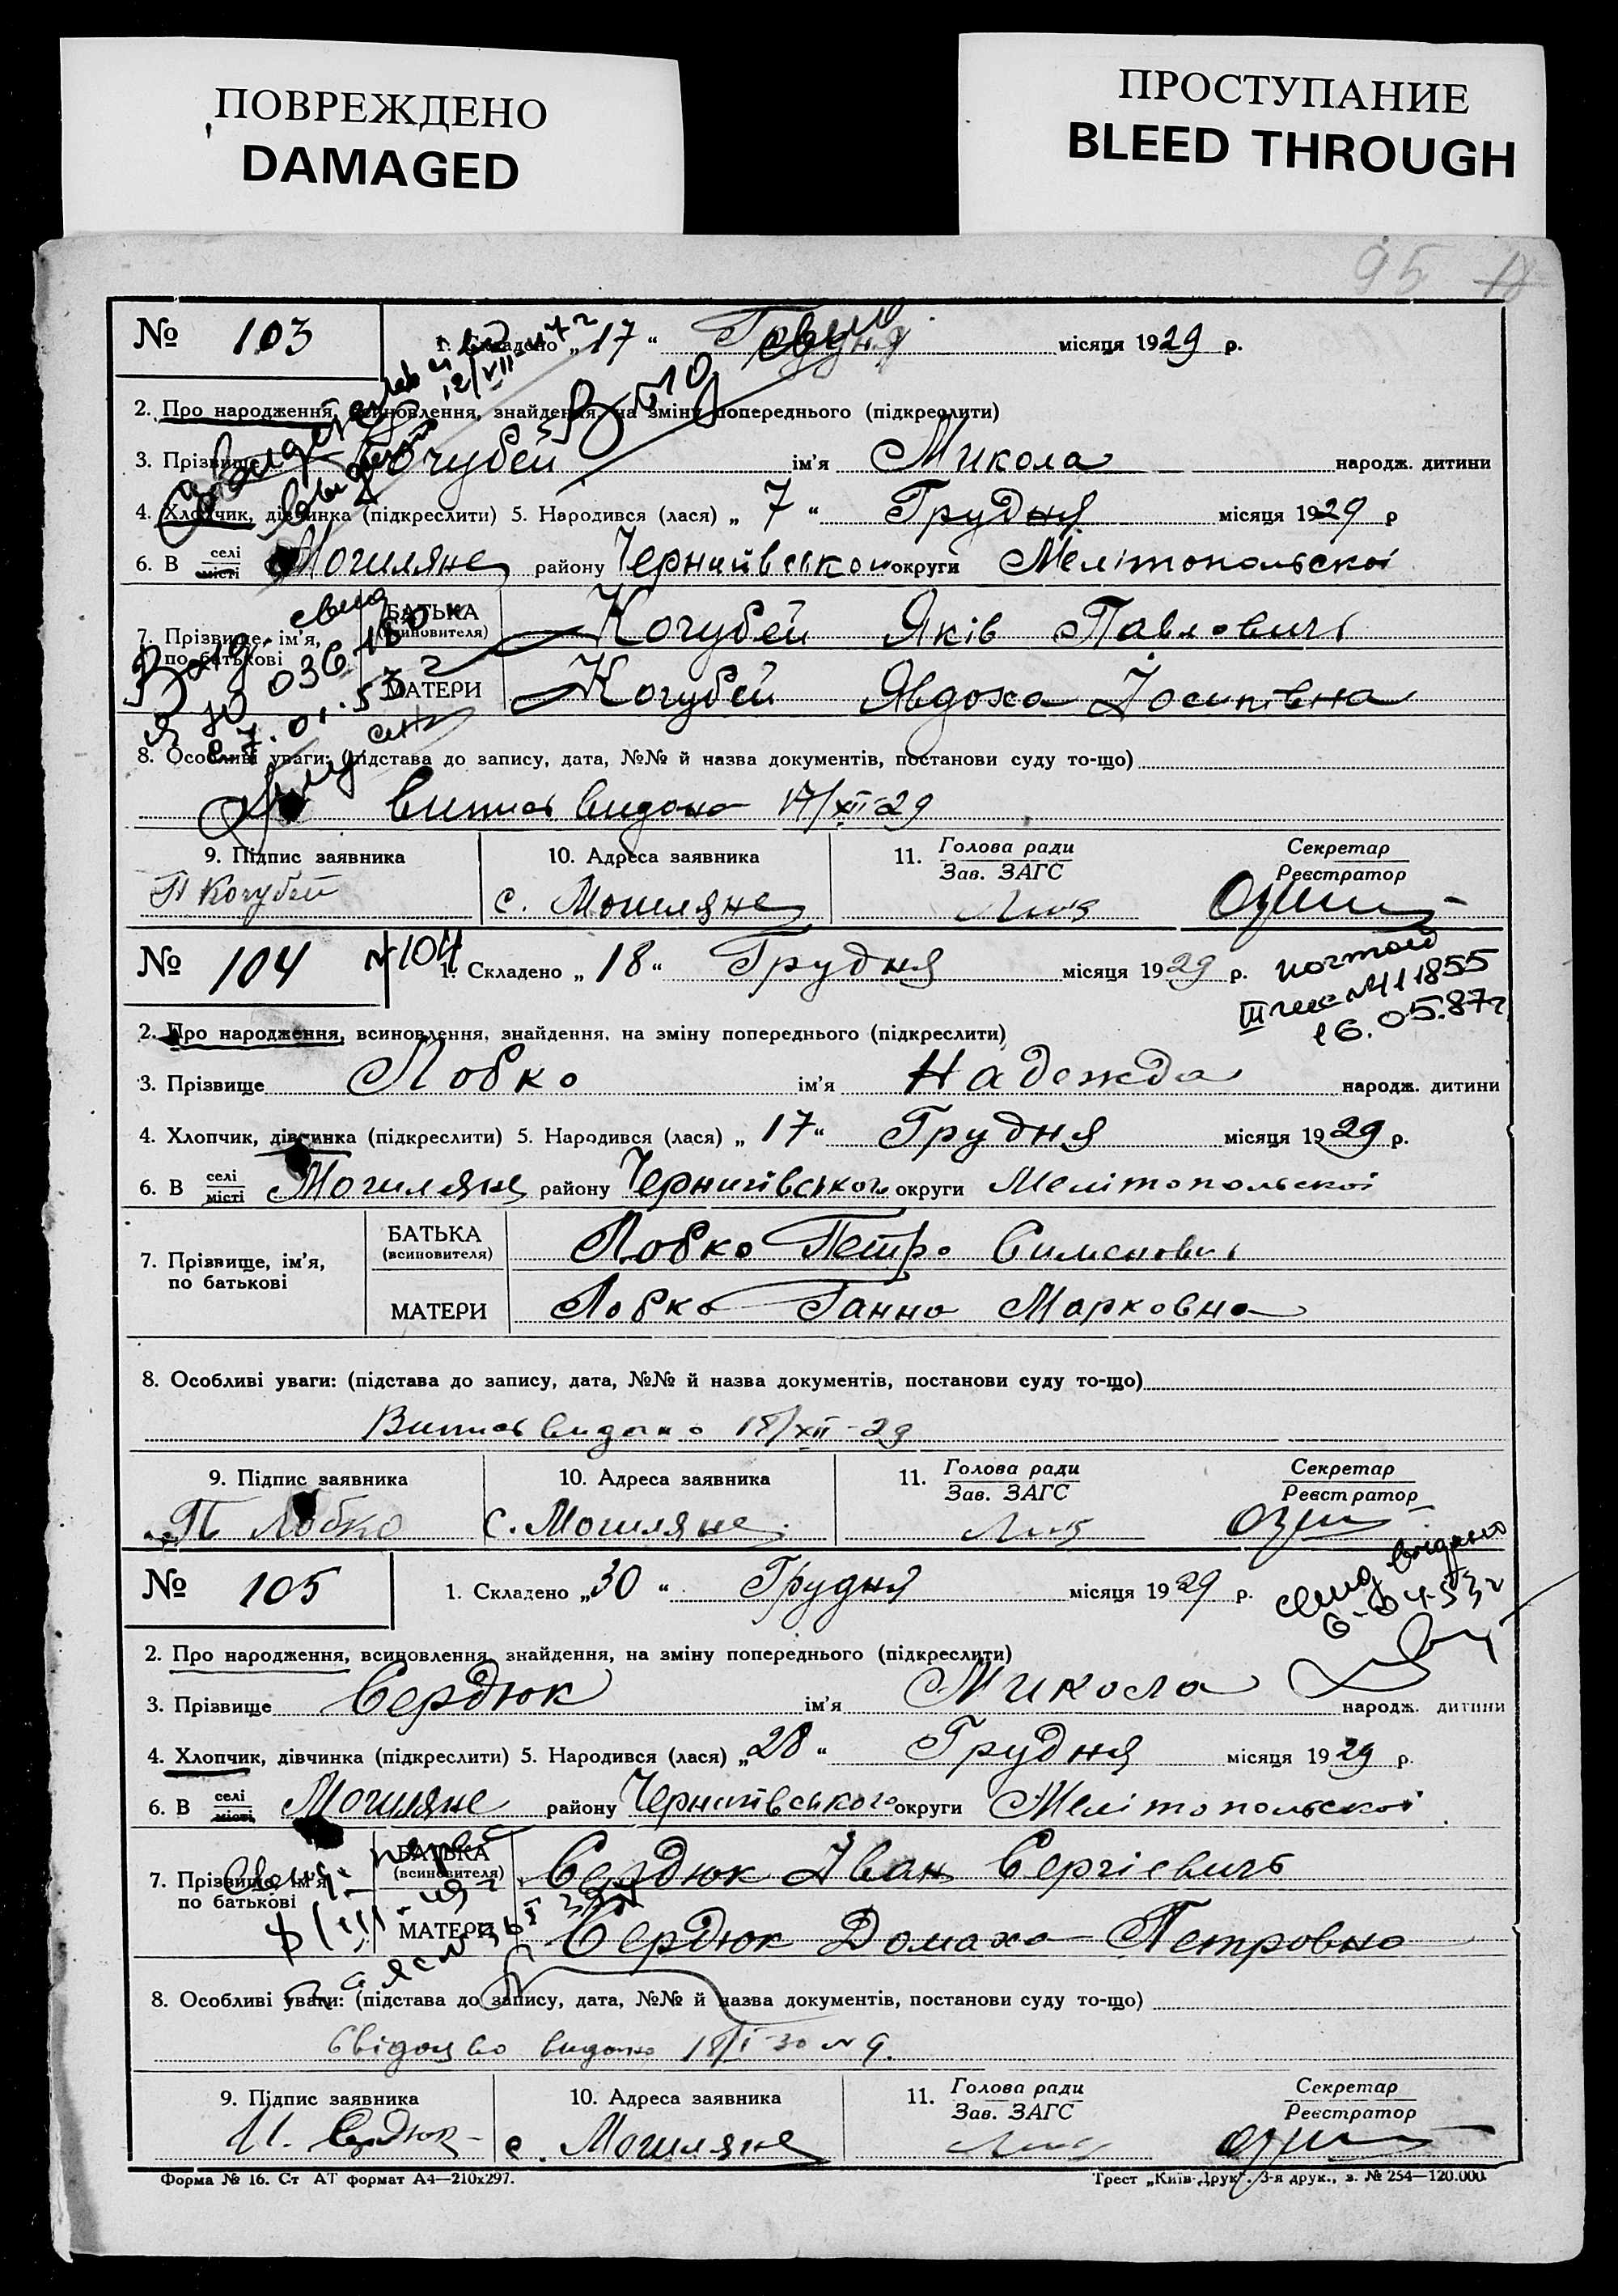 ПОВРЕЖДЕНО
DAMAGED
ПРОСТУПАНИЕ
BLEED THROUGH
95
№ 103
1. Складено „17“ Грудня місяця 1929 р.
12/VII-
2. Про народження, всиновлення, знайдення, на зміну попереднього (підкреслити)
3. Прізвище Кочубей ім'я Микола народж. дитини
4. Хлопчик, дівчинка (підкреслити) 5. Народився (лася) „7“ Грудня місяця 1929 р
6. В селі місті Могиляне району Чернигівського округи Мелітопольскоі
7. Прізвище, ім'я, по батькові
БАТЬКА (всиновителя) Кочубей Яків Павлович
МАТЕРИ Кочубей Явдоха Йосипівна
свид
036180
8. Особливі уваги: (підстава до запису, дата, №№ й назва документів, постанови суду то-що)
Випись видано 17/XII-29
9. Підпис заявника
10. Адреса заявника
11. Голова ради Зав. ЗАГС
Секретар Реєстратор
П Кочубей
с. Могиляне
№ 104
N 104
1. Складено „18“ Грудня місяця 1929 р.
повтор
III № 411855
16.05.87г
2. Про народження, всиновлення, знайдення, на зміну попереднього (підкреслити)
3. Прізвище Лобко ім'я Надежда народж. дитини
4. Хлопчик, дівчинка (підкреслити) 5. Народився (лася) „17“ Грудня місяця 1929 р.
6. В селі місті Могиляне району Чернигівського округи Мелітопольскоі
7. Прізвище, ім'я, по батькові
БАТЬКА (всиновителя) Лобко Петро Сименович
МАТЕРИ Лобко Ганна Марковна
8. Особливі уваги: (підстава до запису, дата, №№ й назва документів, постанови суду то-що)
Випись видано 18/XII-29
9. Підпис заявника
10. Адреса заявника
11. Голова ради Зав. ЗАГС
Секретар Реєстратор
П Лобко
с. Могиляне
№ 105
1. Складено „30“ Грудня місяця 1929 р.
свид видано
6-04-53г
2. Про народження, всиновлення, знайдення, на зміну попереднього (підкреслити)
3. Прізвище Сердюк ім'я Микола народж. дитини
4. Хлопчик, дівчинка (підкреслити) 5. Народився (лася) „28“ Грудня місяця 1929 р.
6. В селі місті Могиляне району Чернигівського округи Мелітопольскоі
7. Прізвище, ім'я, по батькові
БАТЬКА (всиновителя) Сердюк Іван Сергієвичь
МАТЕРИ Сердюк Домаха Петровна
8. Особливі уваги: (підстава до запису, дата, №№ й назва документів, постанови суду то-що)
Свідоцво видано 18/I-30 N 9.
9. Підпис заявника
10. Адреса заявника
11. Голова ради Зав. ЗАГС
Секретар Реєстратор
И. Сердюк
с. Могиляне
Форма № 16. Ст АТ формат А4—210х297.
Трест „Київ-Друк“. 3-я друк., з. № 254—120.000.